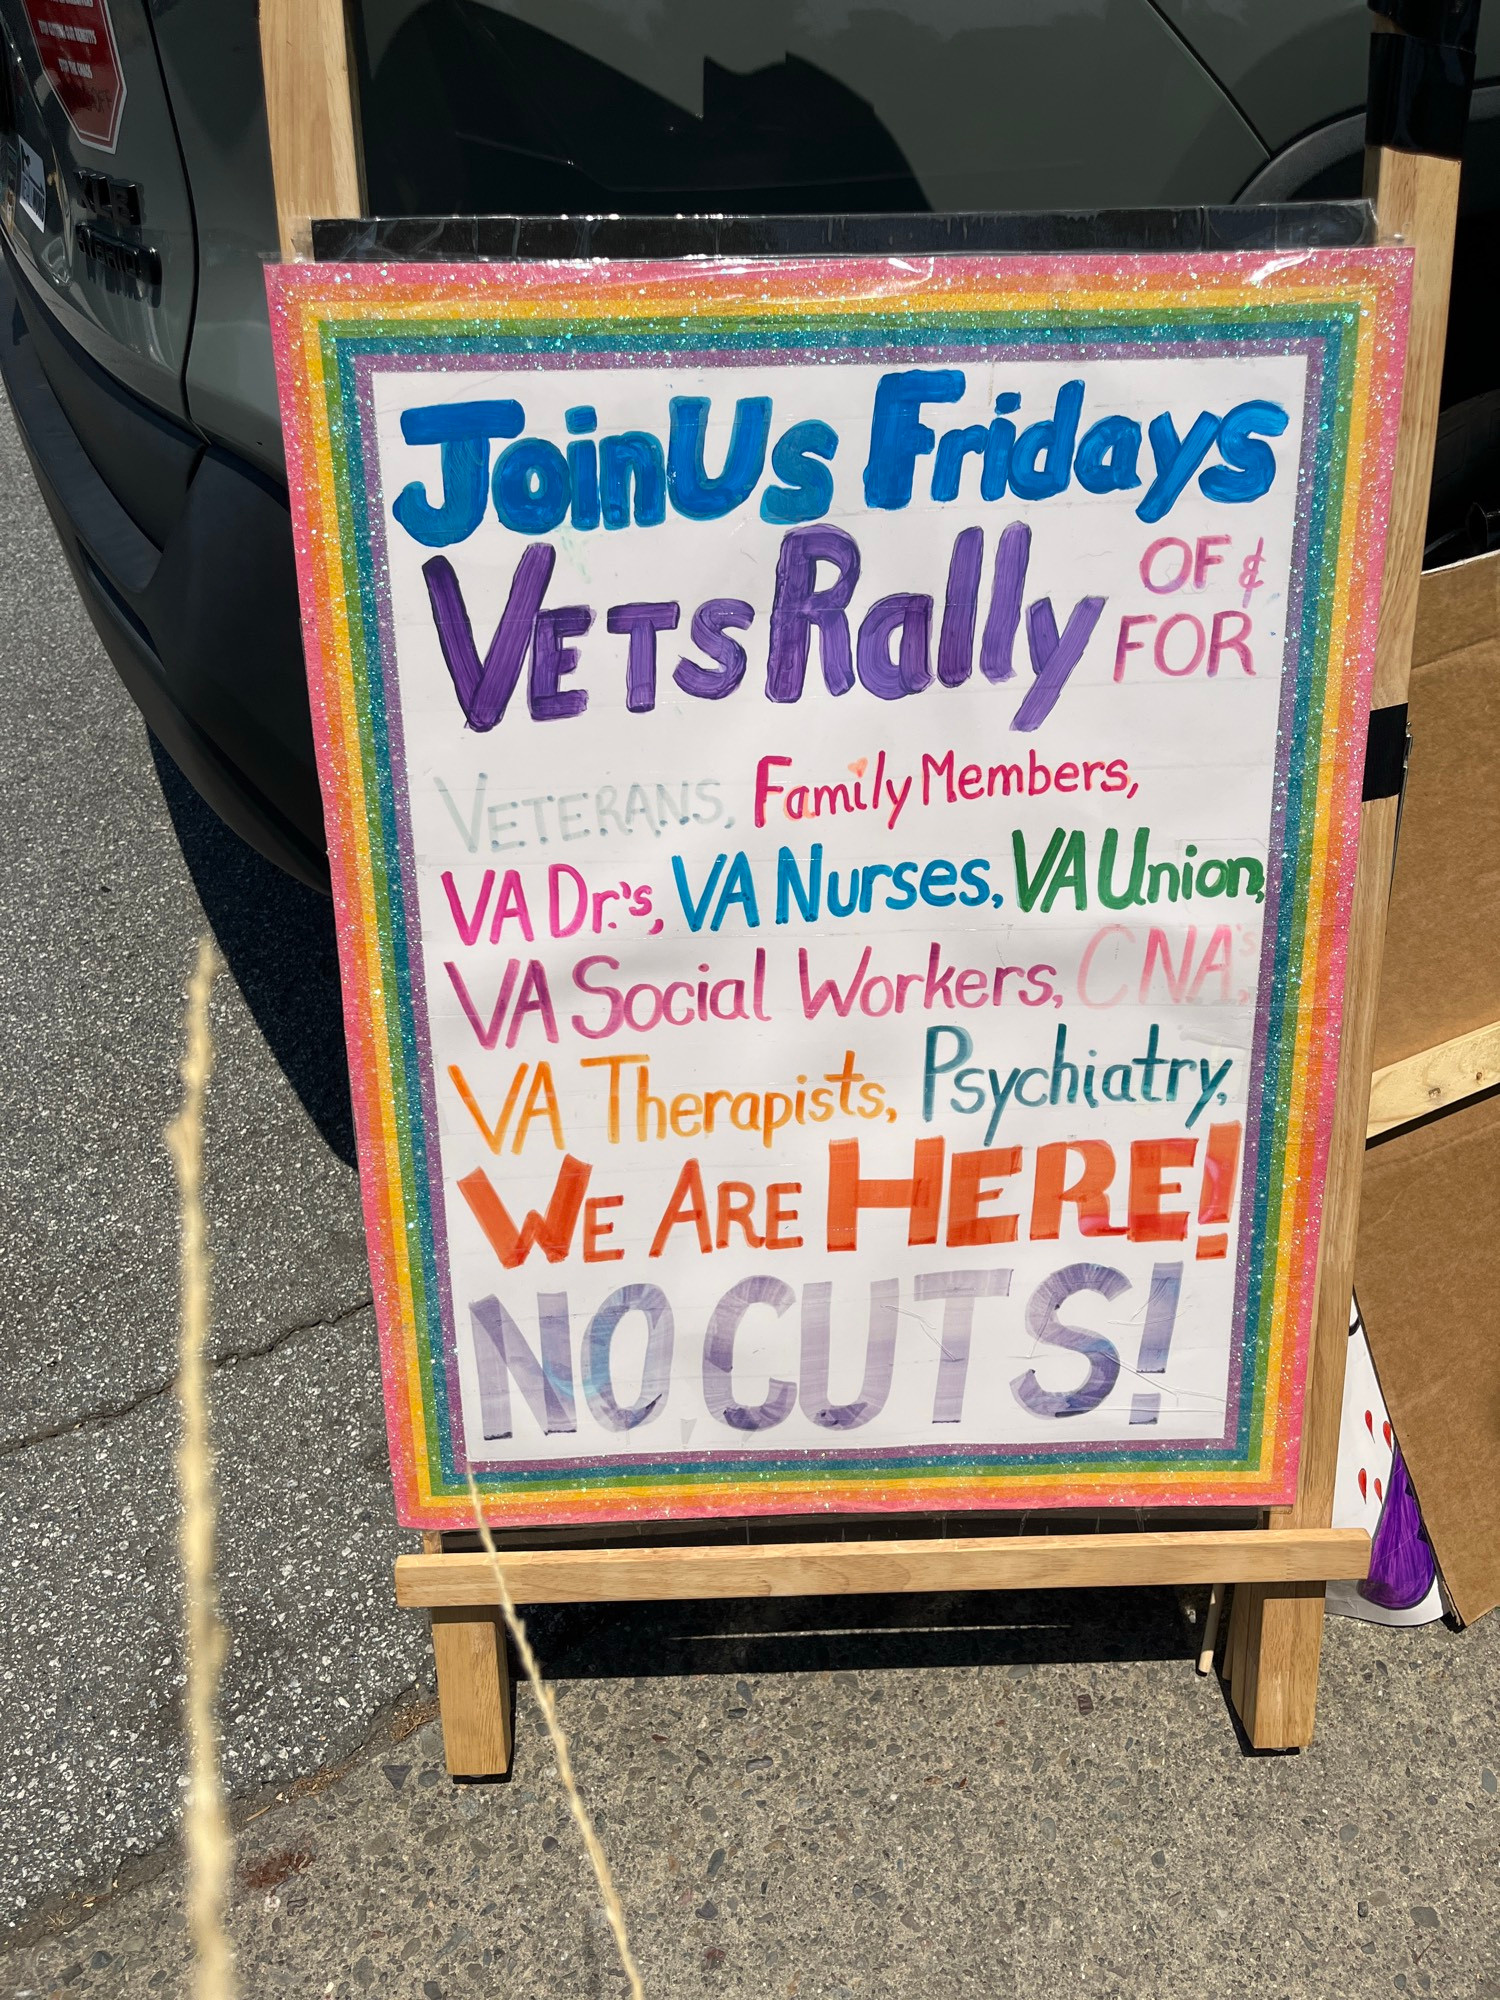 Join Us Fridays
VETS Rally OF &
FOR
VETERANS, Family Members,
VA Dr.'s, VA Nurses, VA Union,
VA Social Workers, CNA's,
VA Therapists, Psychiatry,
WE ARE HERE!
NO CUTS!